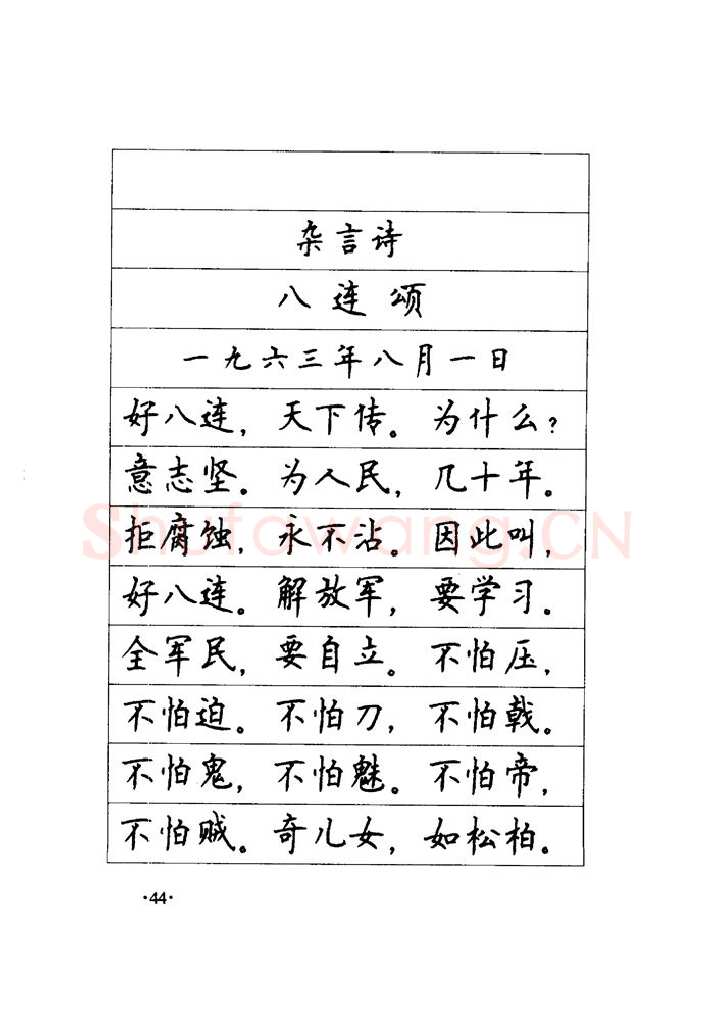 杂言诗
八连颂
一九六三年八月一日
好八连，天下传。为什么？
意志坚。为人民，几十年。
拒腐蚀，永不沾。因此叫，
好八连。解放军，要学习。
全军民，要自立。不怕压，
不怕迫。不怕刀，不怕戟。
不怕鬼，不怕魅。不怕帝，
不怕贼。奇儿女，如松柏。
·44·
Shufawang.CN